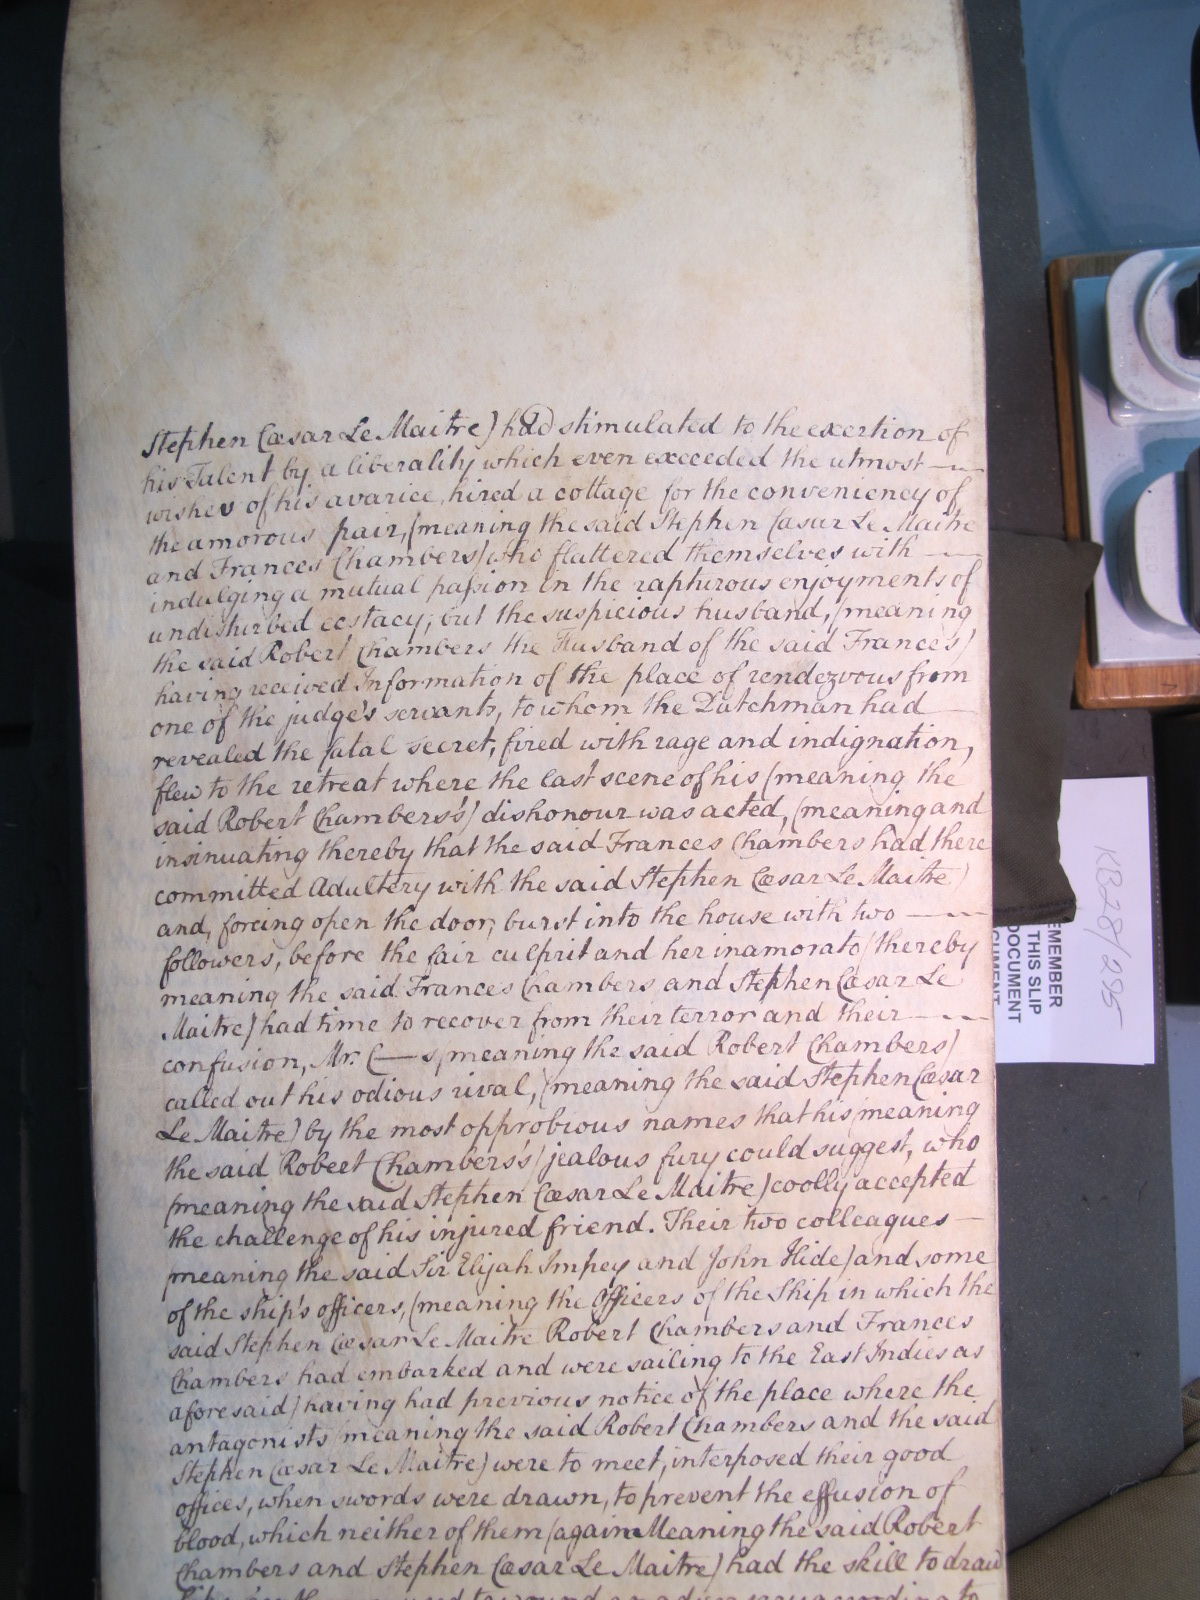 Stephen Cæsar Le Maitre) had stimulated to the exertion of
his Talent by a liberality which even exceeded the utmost
wishes of his avarice, hired a cottage for the conveniency of
the amorous pair, (meaning the said Stephen Cæsar Le Maitre
and Frances Chambers) who flattered themselves with
indulging a mutual passion in the rapturous enjoyments of
undisturbed ecstacy; but the suspicious husband, (meaning
the said Robert Chambers the Husband of the said Frances)
having received Information of the place of rendezvous from
one of the judge's servants, to whom the Dutchman had
revealed the fatal secret, fired with rage and indignation,
flew to the retreat where the last scene of his (meaning the
said Robert Chambers's) dishonour was acted, (meaning and
insinuating thereby that the said Frances Chambers had there
committed Adultery with the said Stephen Cæsar Le Maitre)
and, forcing open the door, burst into the house with two
followers, before the fair culprit and her inamorato (thereby
meaning the said Frances Chambers and Stephen Cæsar Le
Maitre) had time to recover from their terror and their
confusion, Mr. C—s, (meaning the said Robert Chambers)
called out his odious rival, (meaning the said Stephen Cæsar
Le Maitre) by the most opprobious names that his (meaning
the said Robert Chambers's) jealous fury could suggest, who
(meaning the said Stephen Cæsar Le Maitre) coolly accepted
the challenge of his injured friend. Their two colleagues
(meaning the said Sir Elijah Impey and John Hide) and some
of the ship's officers, (meaning the Officers of the Ship in which the
said Stephen Cæsar Le Maitre Robert Chambers and Frances
Chambers had embarked and were sailing to the East Indies as
aforesaid) having had previous notice of the place where the
antagonists (meaning the said Robert Chambers and the said
Stephen Cæsar Le Maitre) were to meet, interposed their good
offices, when swords were drawn, to prevent the effusion of
blood, which neither of them (again Meaning the said Robert
Chambers and Stephen Cæsar Le Maitre) had the skill to draw
KB28/295
THIS SLIP
DOCUMENT